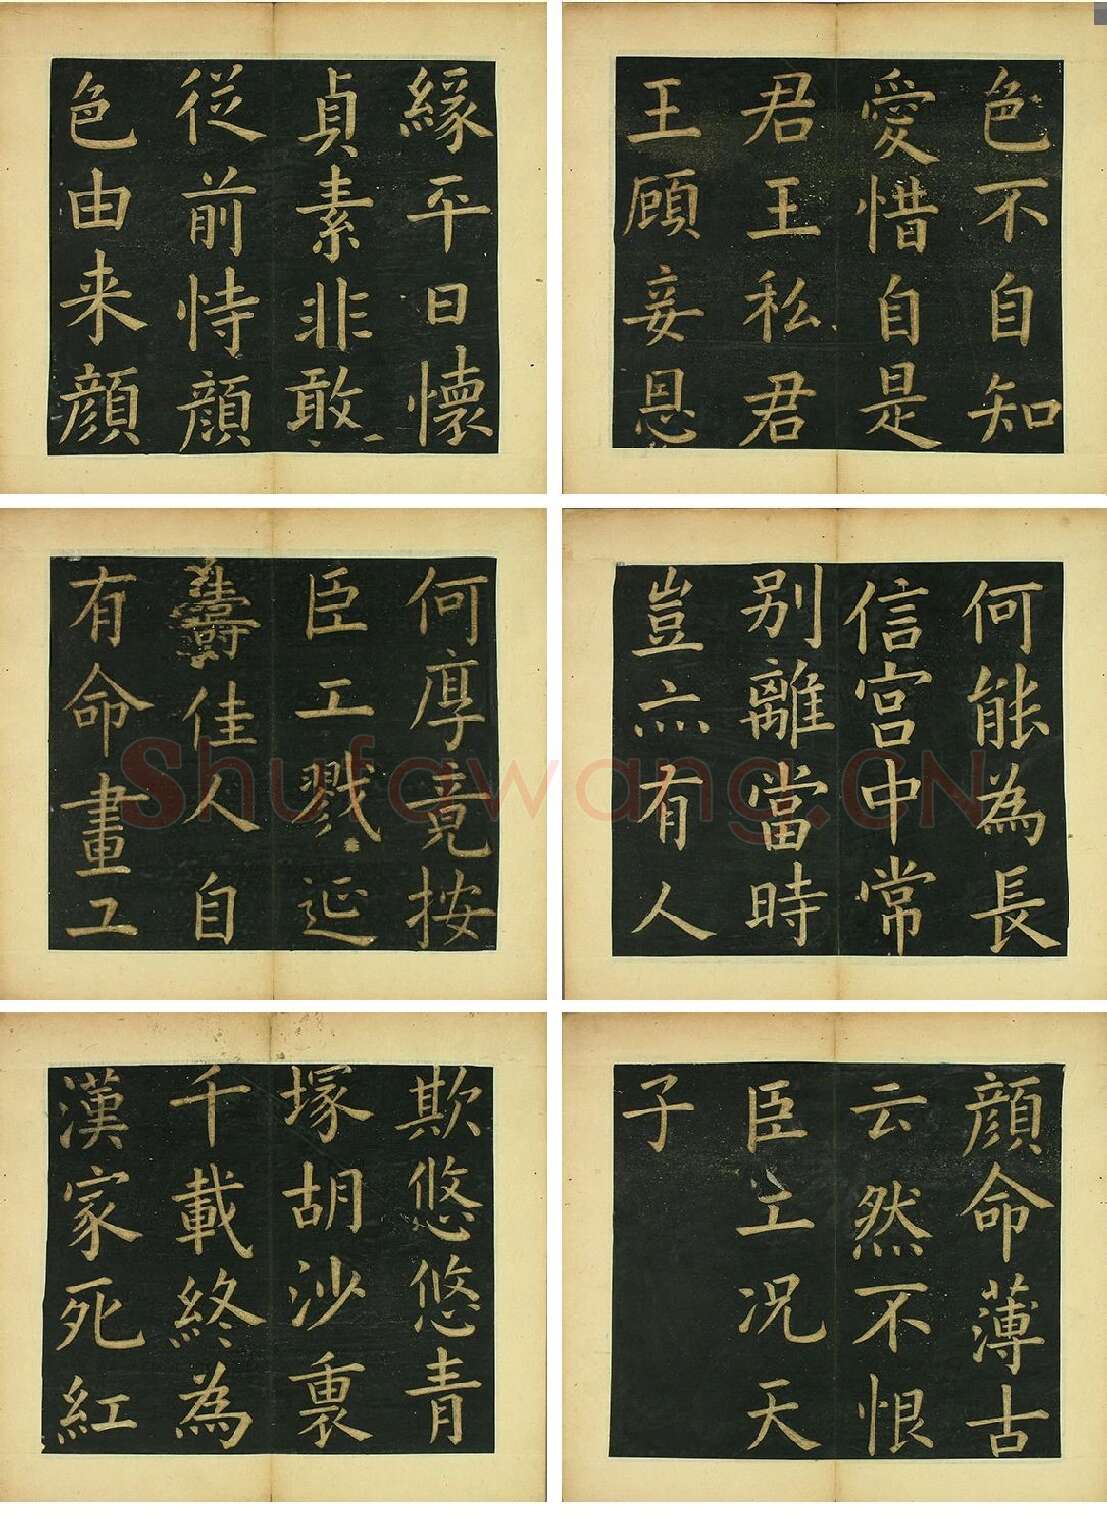 緣平日懷
貞素非敢
從前恃顏
色由来顏
色不自知
愛惜自是
君王私君
王顧妾恩
何厚竟按
臣工戮延
壽佳人自
有命畫工
何能為長
信宮中常
别離當時
豈亦有人
欺悠悠青
塚胡沙裏
千載終為
漢家死紅
顏命薄古
云然不恨
臣工况天
子
Shufawang.CN